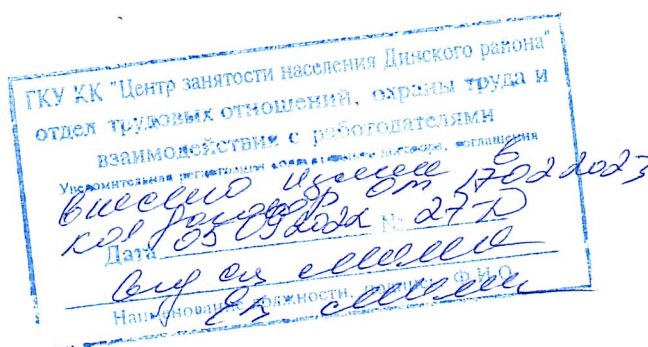 ГКУ КК "Центр занятости населения Динского района"
отдел трудовых отношений, охраны труда и
взаимодействия с работодателями
Уведомительная регистрация коллективного договора, соглашения
внесено измен в
кол договор от 17 02 2023
Дата 05 09 2022 № 27-D
Наименование должности, подпись, Ф.И.О.